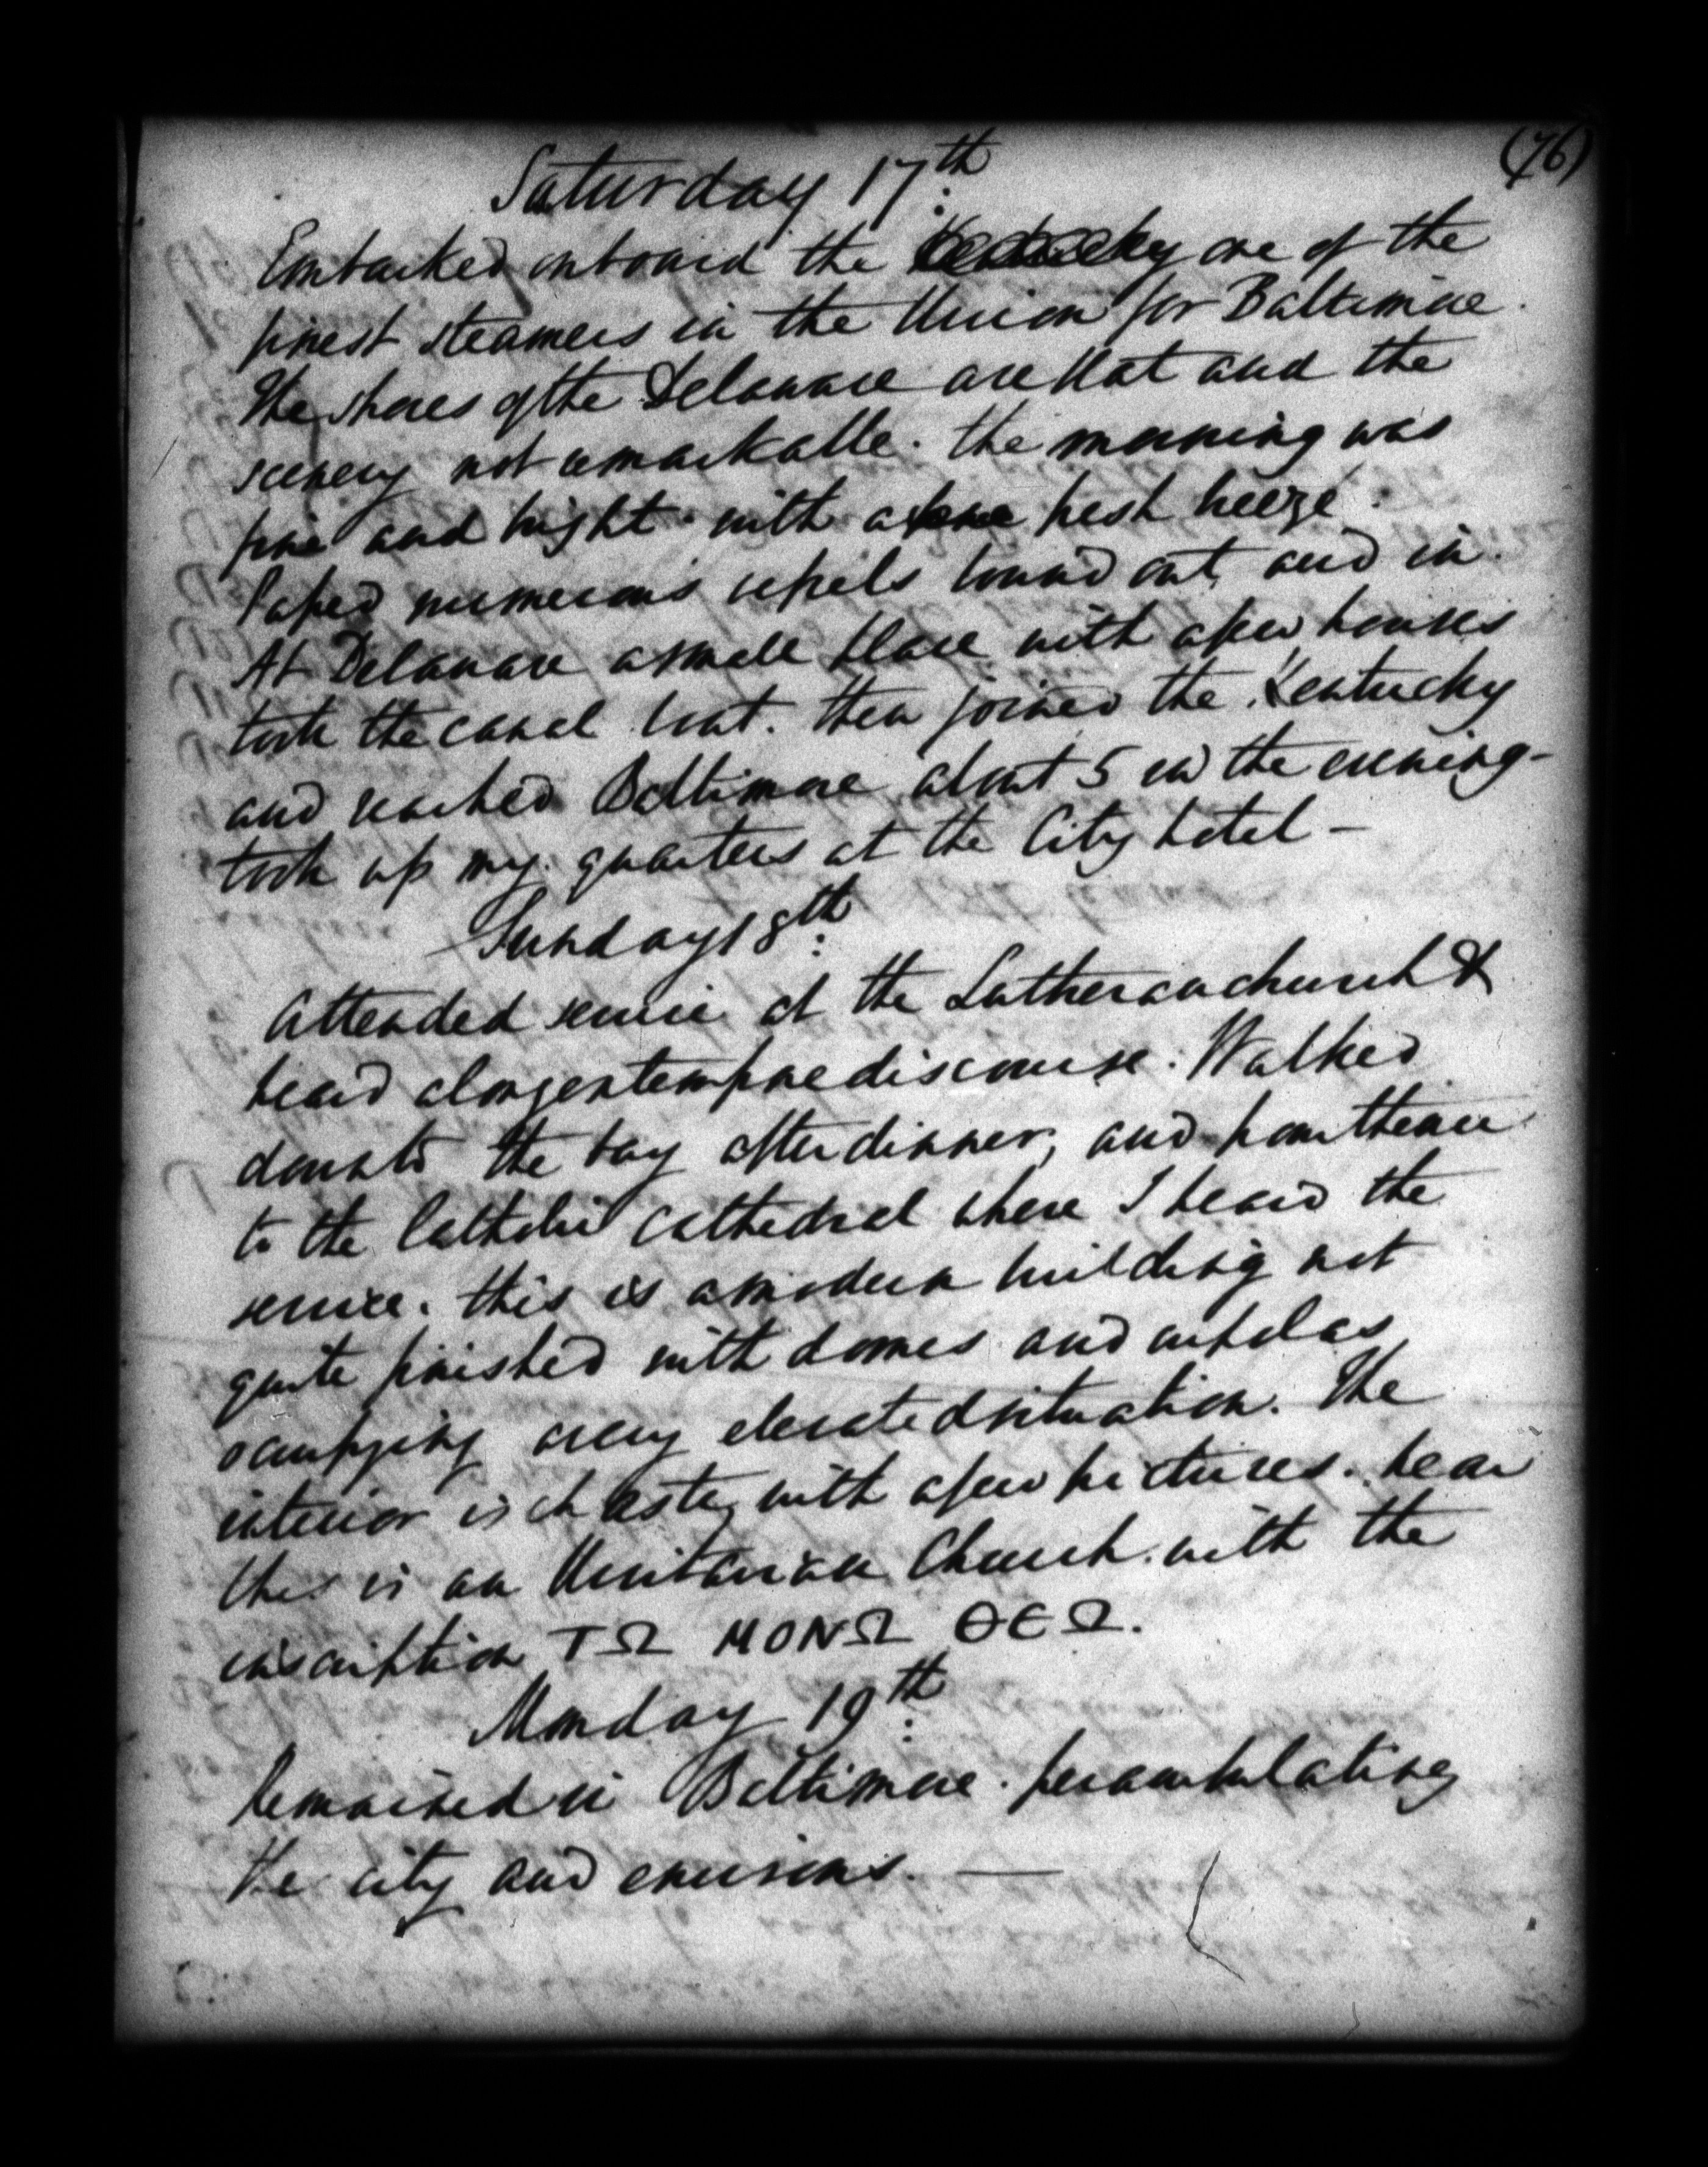 (76)
Saturday 17th
Embarked onboard the Kentucky one of the
finest steamers in the Union for Baltimore.
The shores of the Delaware are flat and the
scenery not remarkable. the morning was
fine and bright with a fresh breeze.
Passed numerous vessels bound out, and in.
At Delaware a small place with a few houses
took the canal boat. then joined the Kentucky
and reached Baltimore about 5 in the evening -
took up my quarters at the City hotel -
Sunday 18th
Attended service at the Lutheran church &
heard a long extempore discourse. Walked
down to the bay after dinner, and from thence
to the Catholic Cathedral where I heard the
service. this is a modern building not
quite finished with domes and cupolas,
occupying a very elevated situation. The
interior is chaste, with a few pictures. near
this is an Unitarian Church. with the
inscription ΤΩ ΜΟΝΩ ΘΕΩ.
Monday 19th
Remained in Baltimore. perambulating
the city and environs. —